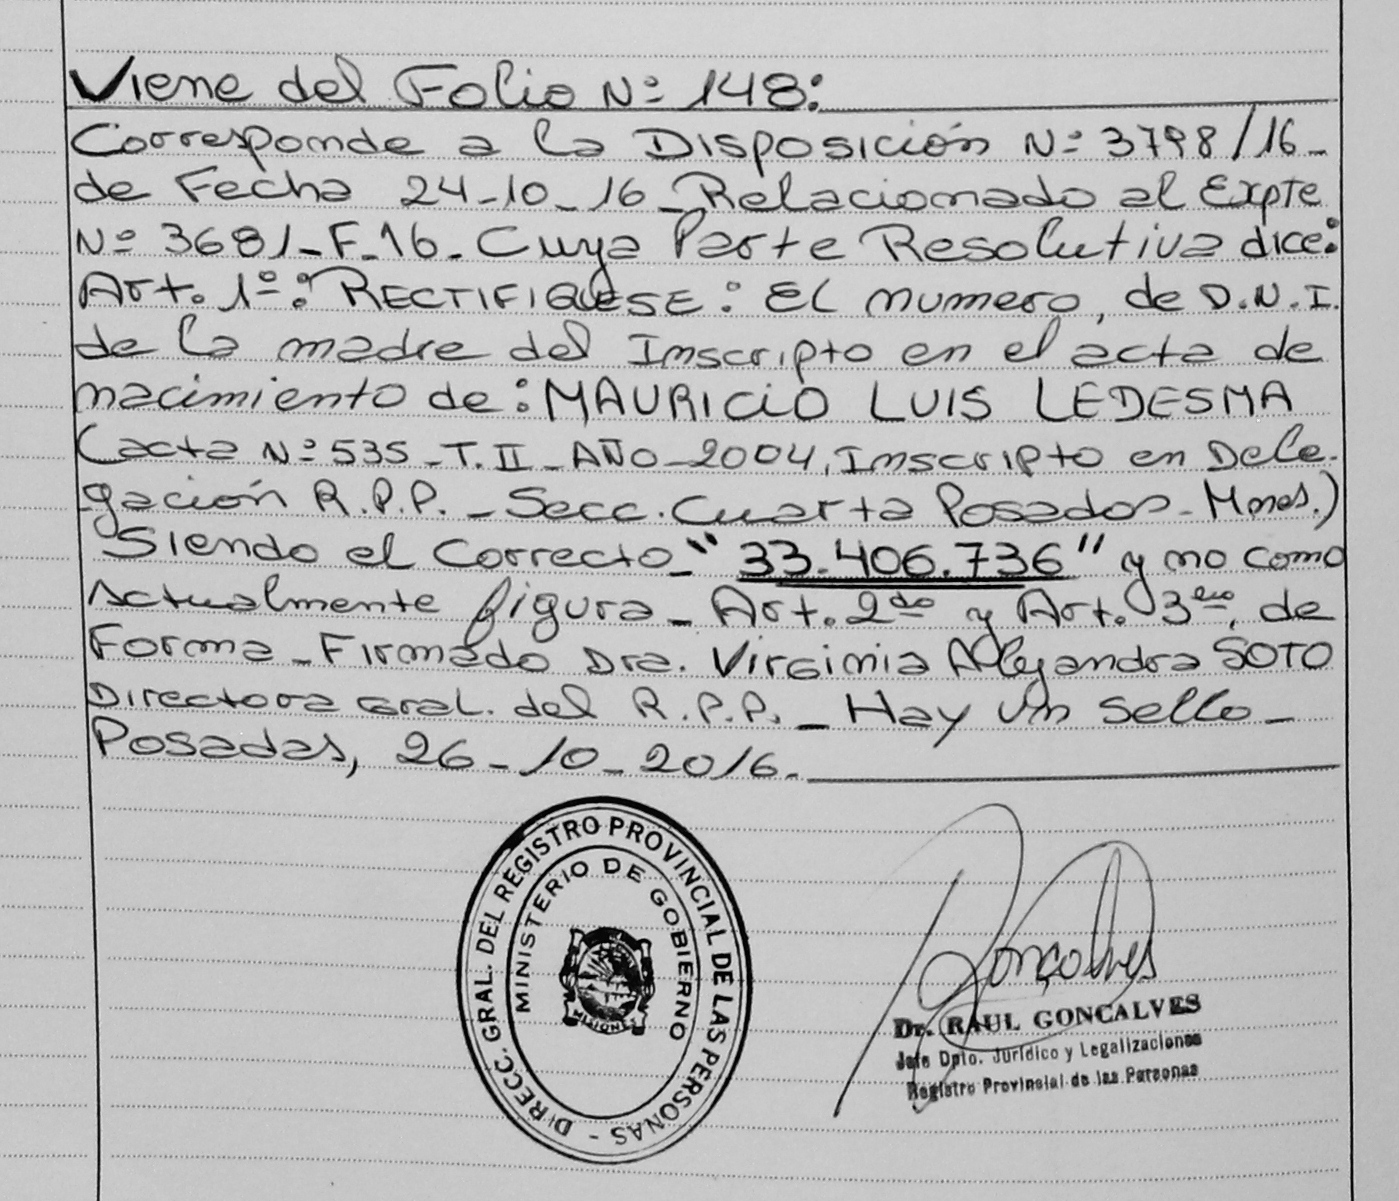 Viene del Folio Nº 148:
Corresponde a la Disposición Nº 3798/16-
de Fecha 24-10-16-Relacionado al Expte
Nº 3681-F-16- Cuya Parte Resolutiva dice:
Art. 1º: RECTIFIQUESE: El numero, de D.N.I.
de la madre del Inscripto en el acta de
nacimiento de: MAURICIO LUIS LEDESMA
(acta Nº 535-T.II-AÑO-2004, Inscripto en Dele-
gación R.P.P.-Secc. Cuarta Posadas-Mnes.)
Siendo el Correcto-"33.406.736" y no como
Actualmente figura- Art. 2do y Art. 3ero, de
Forma-Firmado Dra. Virginia Alejandra SOTO
Directora Gral. del R.P.P.-Hay un sello-
Posadas, 26-10-2016.
DIRECC. GRAL. DEL REGISTRO PROVINCIAL DE LAS PERSONAS -
MINISTERIO DE GOBIERNO
MISIONES
Goncalves
Dr. RAUL GONCALVES
Jefe Dpto. Jurídico y Legalizaciones
Registro Provincial de las Personas